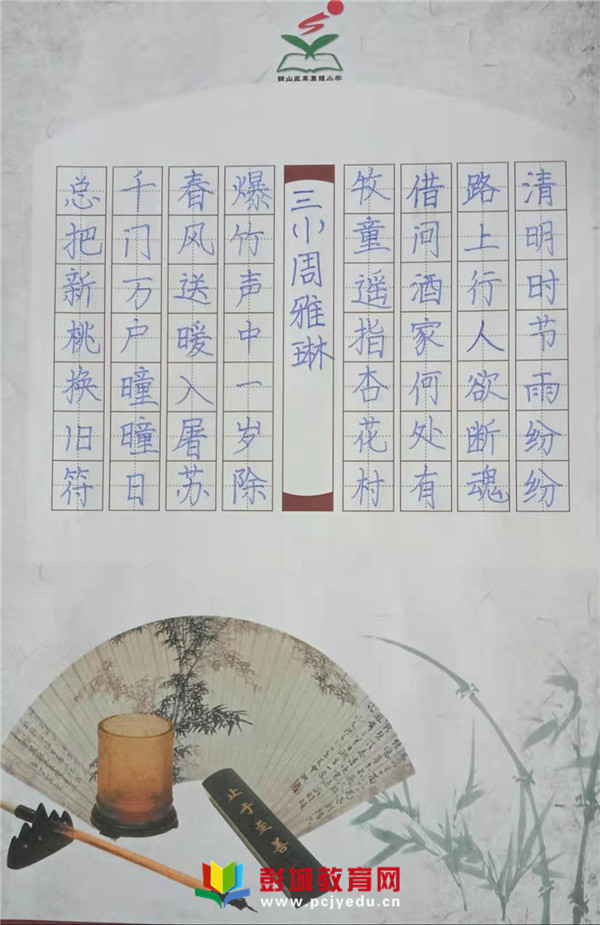 清明时节雨纷纷
路上行人欲断魂
借问酒家何处有
牧童遥指杏花村
三(1)周雅琳
爆竹声中一岁除
春风送暖入屠苏
千门万户曈曈日
总把新桃换旧符
止于至善
彭城教育网
www.pcjyedu.cn